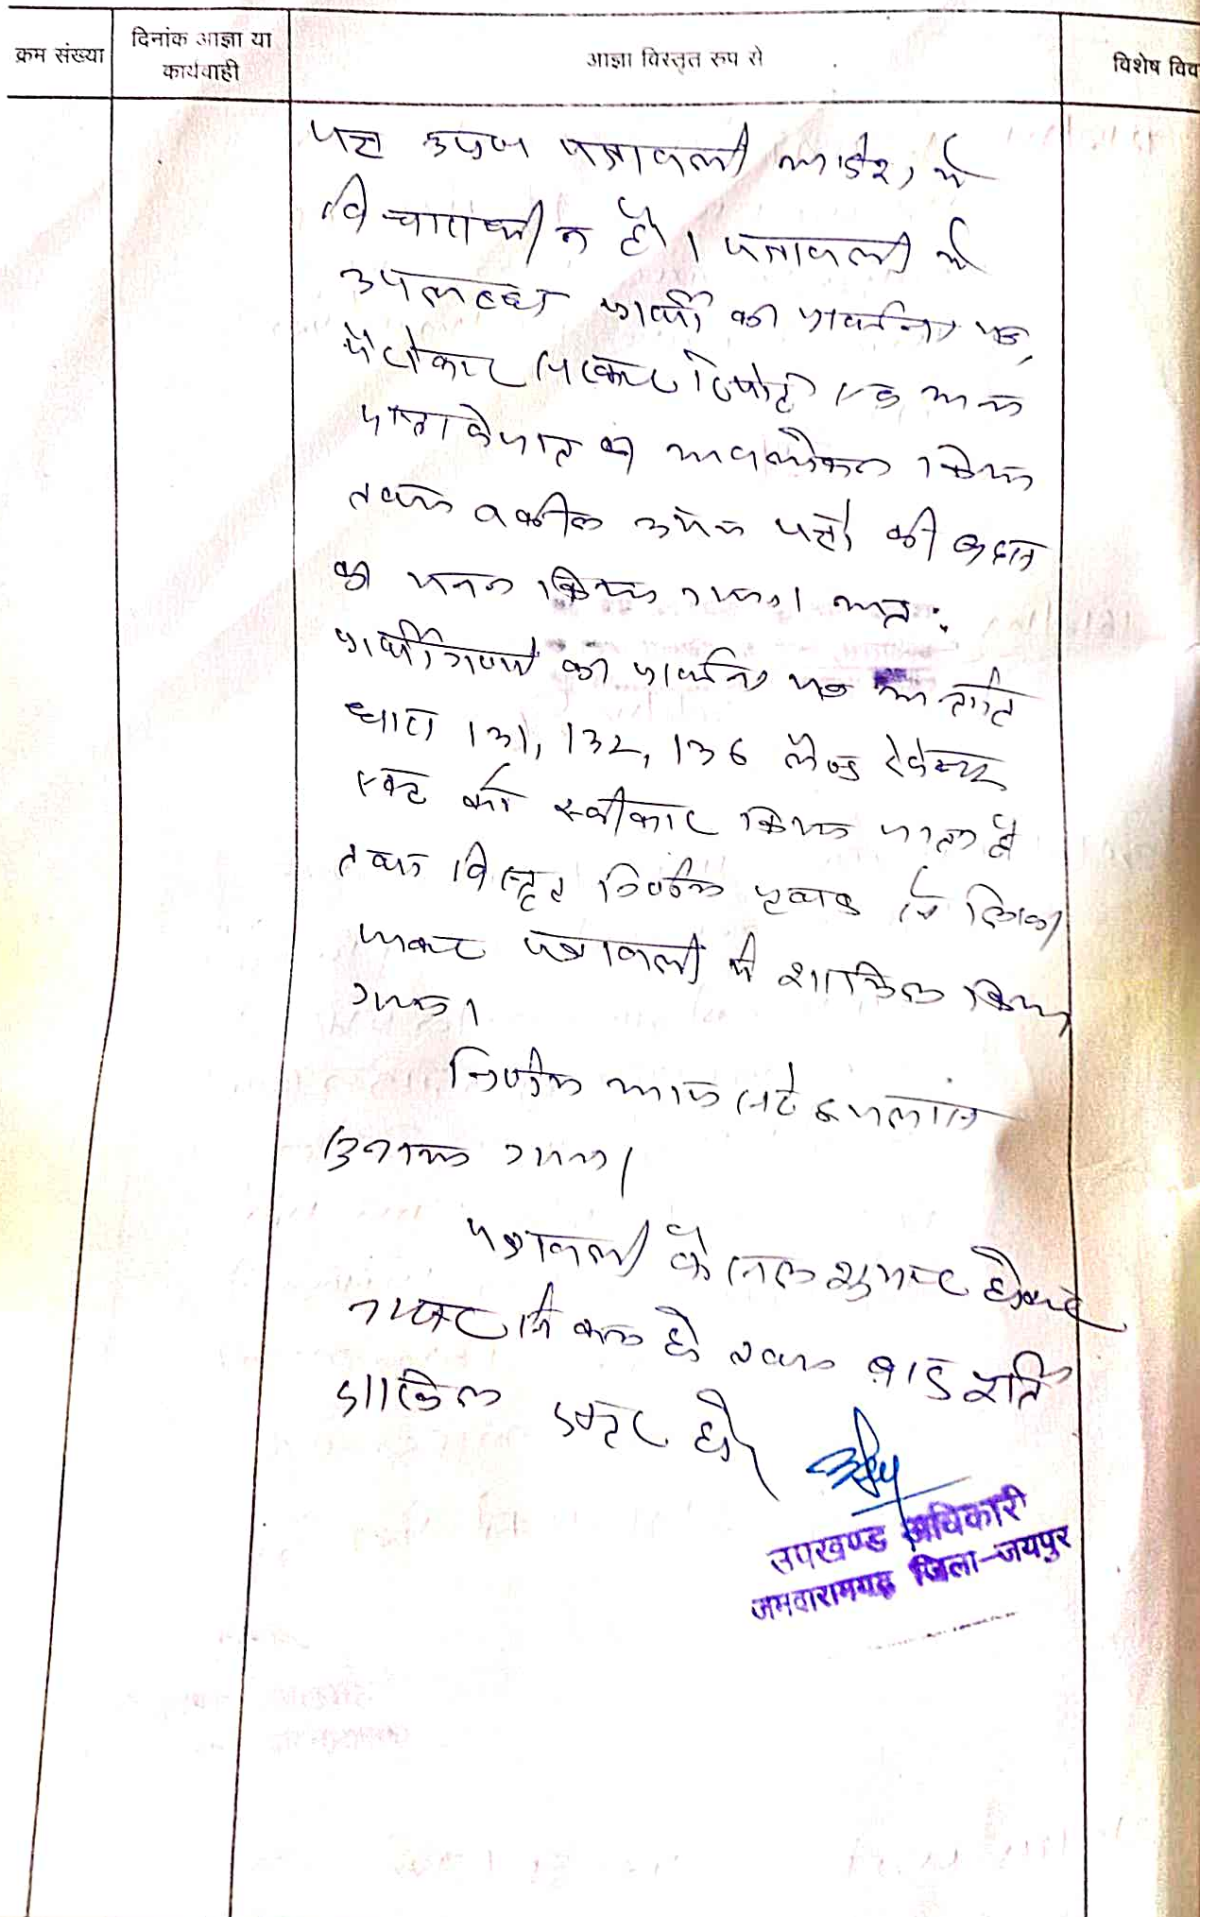 क्रम संख्या
दिनांक आज्ञा या
कार्यवाही
आज्ञा विस्तृत रूप से
विशेष विव
पक्ष उपस्थित पत्रावली आदेश में
विचाराधीन है। पत्रावली में
उपलब्ध प्रार्थी का प्रार्थना पत्र,
पैरोकार सरकार रिपोर्ट एवं अन्य
का अवलोकन किया
तथा वकील उभय पक्षों की बहस
का मनन किया गया। अतः
प्रार्थीगण का प्रार्थना पत्र अन्तर्गत
धारा 131, 132, 136 लैण्ड रेवेन्यू
एक्ट को स्वीकार किया जाता है
तथा विस्तृत निर्णय पृथक से लिखा
जाकर पत्रावली में शामिल किया
गया।
निर्णय आज सरे इजलास
सुनाया गया।
पत्रावली फैसल शुमार होकर
नम्बर से कम हो तथा बाद पूर्ति
दाखिल दफ्तर हो।
उपखण्ड अधिकारी
जमवारामगढ़ जिला-जयपुर